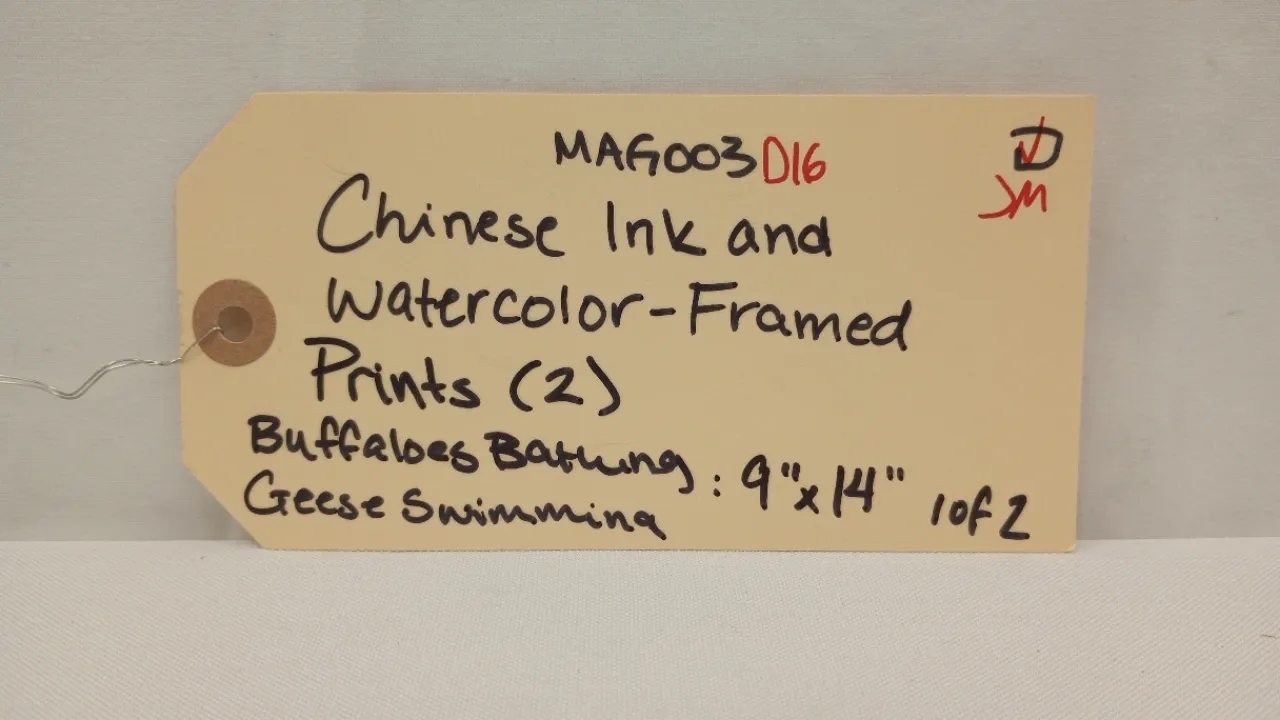 MAG003 D16
D
JM
Chinese Ink and
Watercolor-Framed
Prints (2)
Buffaloes Bathing
Geese Swimming : 9"x14" 1 of 2